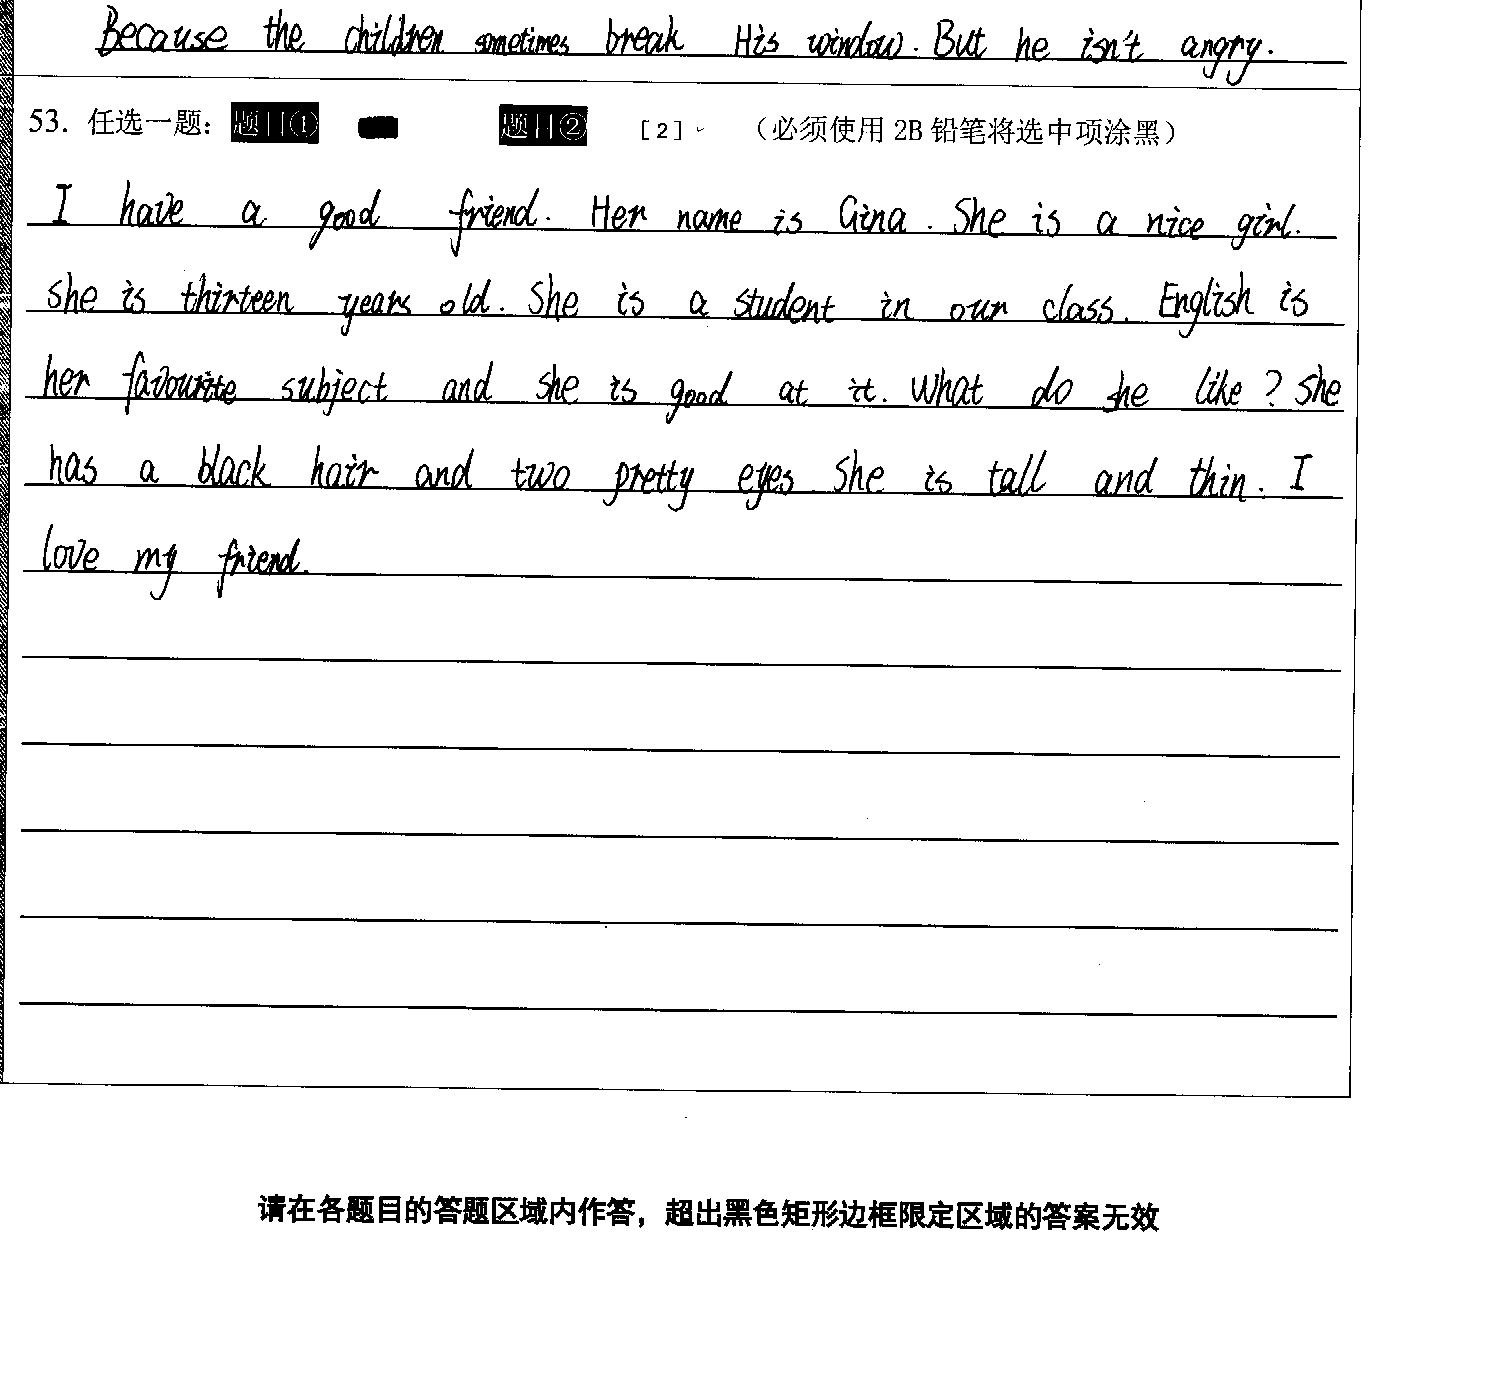 Because the children sometimes break His window. But he isn't angry.
53. 任选一题： 题目① 题目② [2] （必须使用 2B 铅笔将选中项涂黑）
I have a good friend. Her name is Gina. She is a nice girl.
she is thirteen years old. She is a student in our class. English is
her favourite subject and she is good at it. What do she like? She
has a black hair and two pretty eyes She is tall and thin. I
love my friend.
请在各题目的答题区域内作答，超出黑色矩形边框限定区域的答案无效